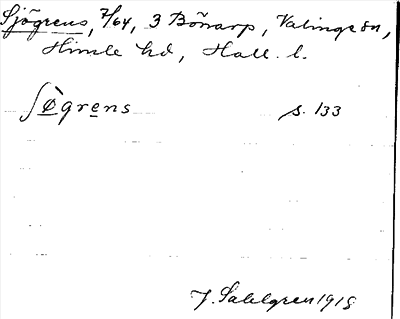 Sjögrens, 7/64, 3 Bönarp, Valinge sn,
Himle hd, Hall. l.
ʃø̀grens s. 133
J. Sahlgren 1915